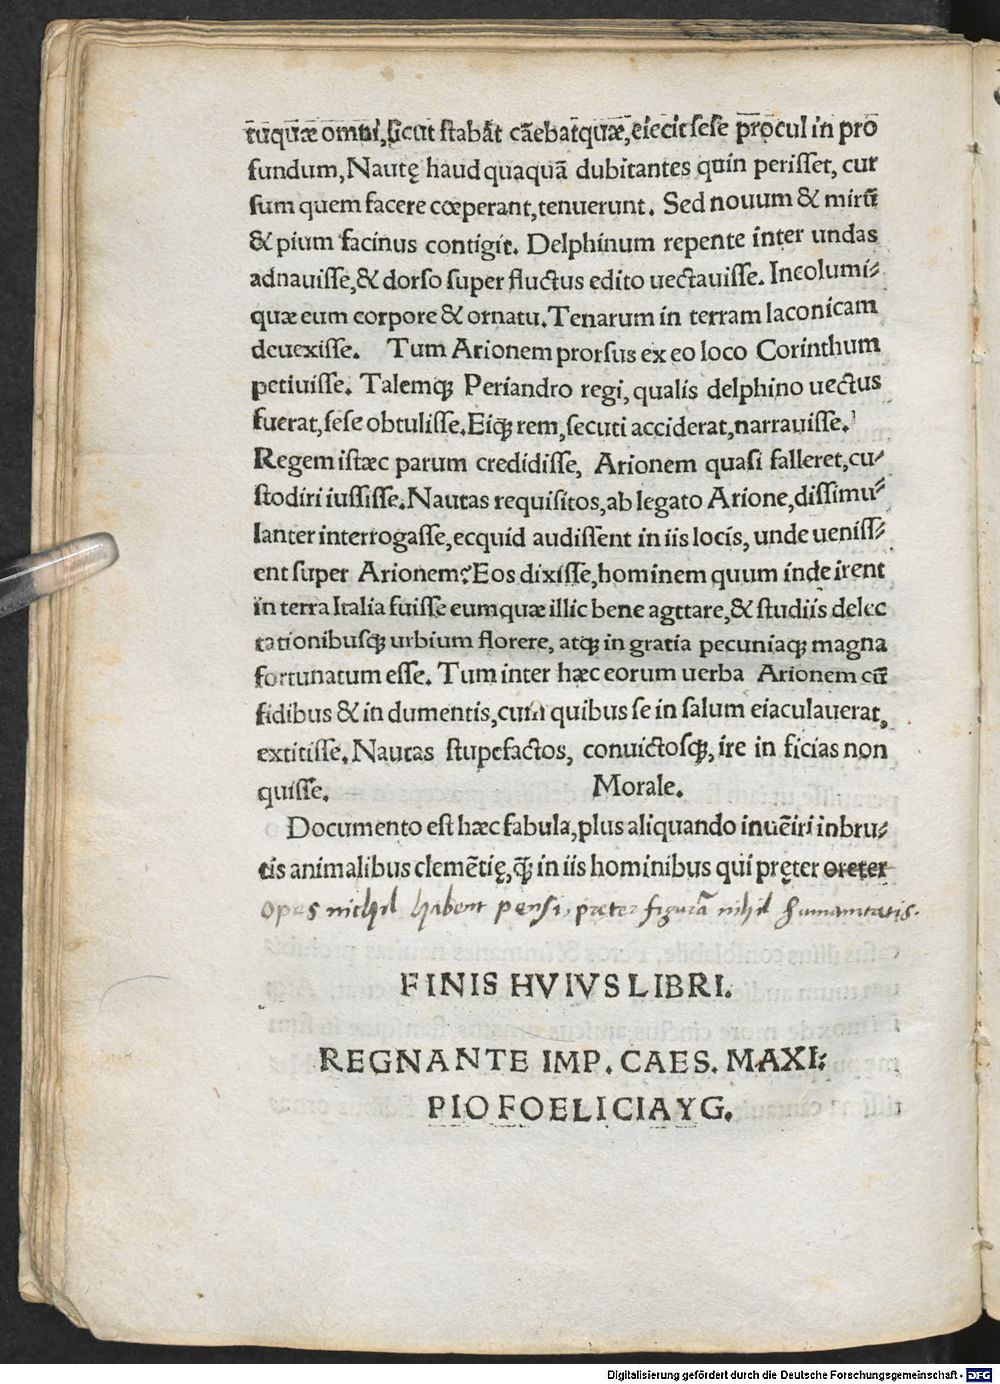 tuquæ omni, sicut stabat cãebatquæ, eiecit sese procul in pro
fundum, Nautę haud quaquã dubitantes quin perisset, cur
sum quem facere cœperant, tenuerunt. Sed nouum & mirũ
& pium facinus contigit. Delphinum repente inter undas
adnauisse, & dorso super fluctus edito uectauisse. Incolumi⸗
quæ eum corpore & ornatu. Tenarum in terram laconicam
deuexisse. Tum Arionem prorsus ex eo loco Corinthum
petiuisse. Talemqꝫ Periandro regi, qualis delphino uectus
fuerat, sese obtulisse. Eiqꝫ rem, secuti acciderat, narrauisse.
Regem istæc parum credidisse, Arionem quasi falleret, cu⸗
stodiri iussisse. Nautas requisitos, ab legato Arione, dissimu⸗
lanter interrogasse, ecquid audissent in iis locis, unde ueniss⸗
ent super Arionem? Eos dixisse, hominem quum inde irent
in terra Italia fuisse eumquæ illic bene agttare, & studiis delec
tationibusqꝫ urbium florere, atqꝫ in gratia pecuniaqꝫ magna
fortunatum esse. Tum inter hæc eorum uerba Arionem cũ
fidibus & in dumentis, cum quibus se in salum eiaculauerat,
extitisse. Nautas stupefactos, conuictosqꝫ, ire in ficias non
quisse. Morale.
Documento est hæc fabula, plus aliquando inuẽiri in bru⸗
tis animalibus clemẽtię, q̃ꝫ in iis hominibus qui pręter oreter
opes nichil habent pensi, preter figurã nihil humanitatis.
FINIS HVIVS LIBRI.
REGNANTE IMP. CAES. MAXI⸗
PIO FOELICI AYG.
Digitalisierung gefördert durch die Deutsche Forschungsgemeinschaft - DFG